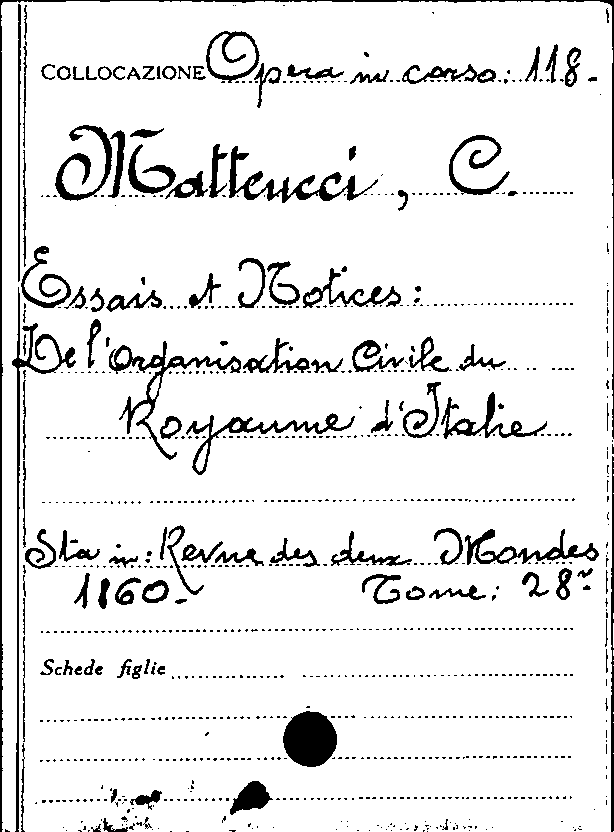 COLLOCAZIONE Opera in corso: 118.
Matteucci, C.
Essais et Notices:
De l'Organisation Civile du
Royaume d'Italie
Sta in: Revue des deux Mondes
1860. Tome: 28º
Schede figlie